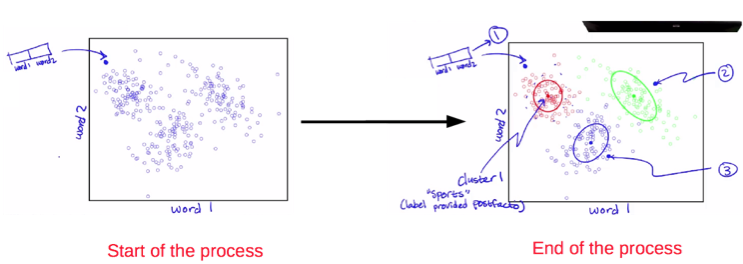 word1 word2
word 2
word 1
Start of the process
1
word1 word2
word 2
2
3
Cluster 1
"Sports"
(label provided postfacto)
word 1
End of the process